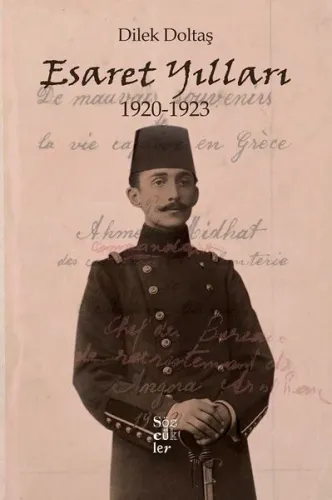 Dilek Doltaş
Esaret Yılları
De mauvais souvenirs
1920-1923
la vie captive en Grèce
Ahmed Midhat
Commandant
des
Chef du Bureau
de recrutement de
Angora
Söz
cük
ler